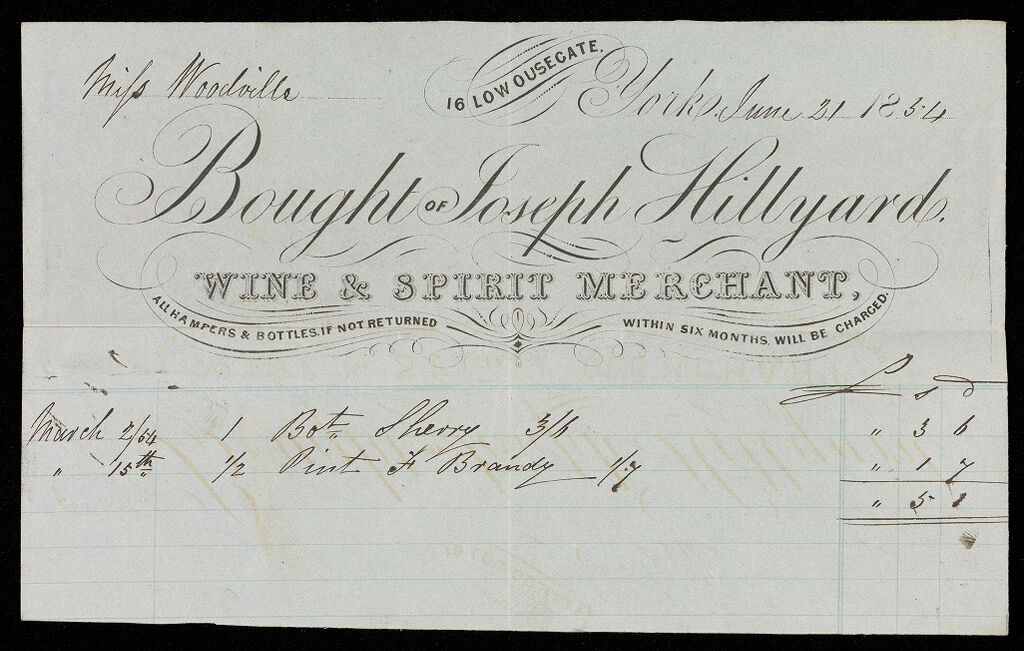 Miss Woodville
16 LOW OUSEGATE.
York, June 21 1854
Bought OF Joseph Hillyard.
WINE & SPIRIT MERCHANT,
ALL HAMPERS & BOTTLES, IF NOT RETURNED WITHIN SIX MONTHS, WILL BE CHARGED.
£ s d
March 2/54 1 Bot" Sherry 3/6 " 3 6
" 15th 1/2 Pint F Brandy 1/7 " 1 7
" 5 1